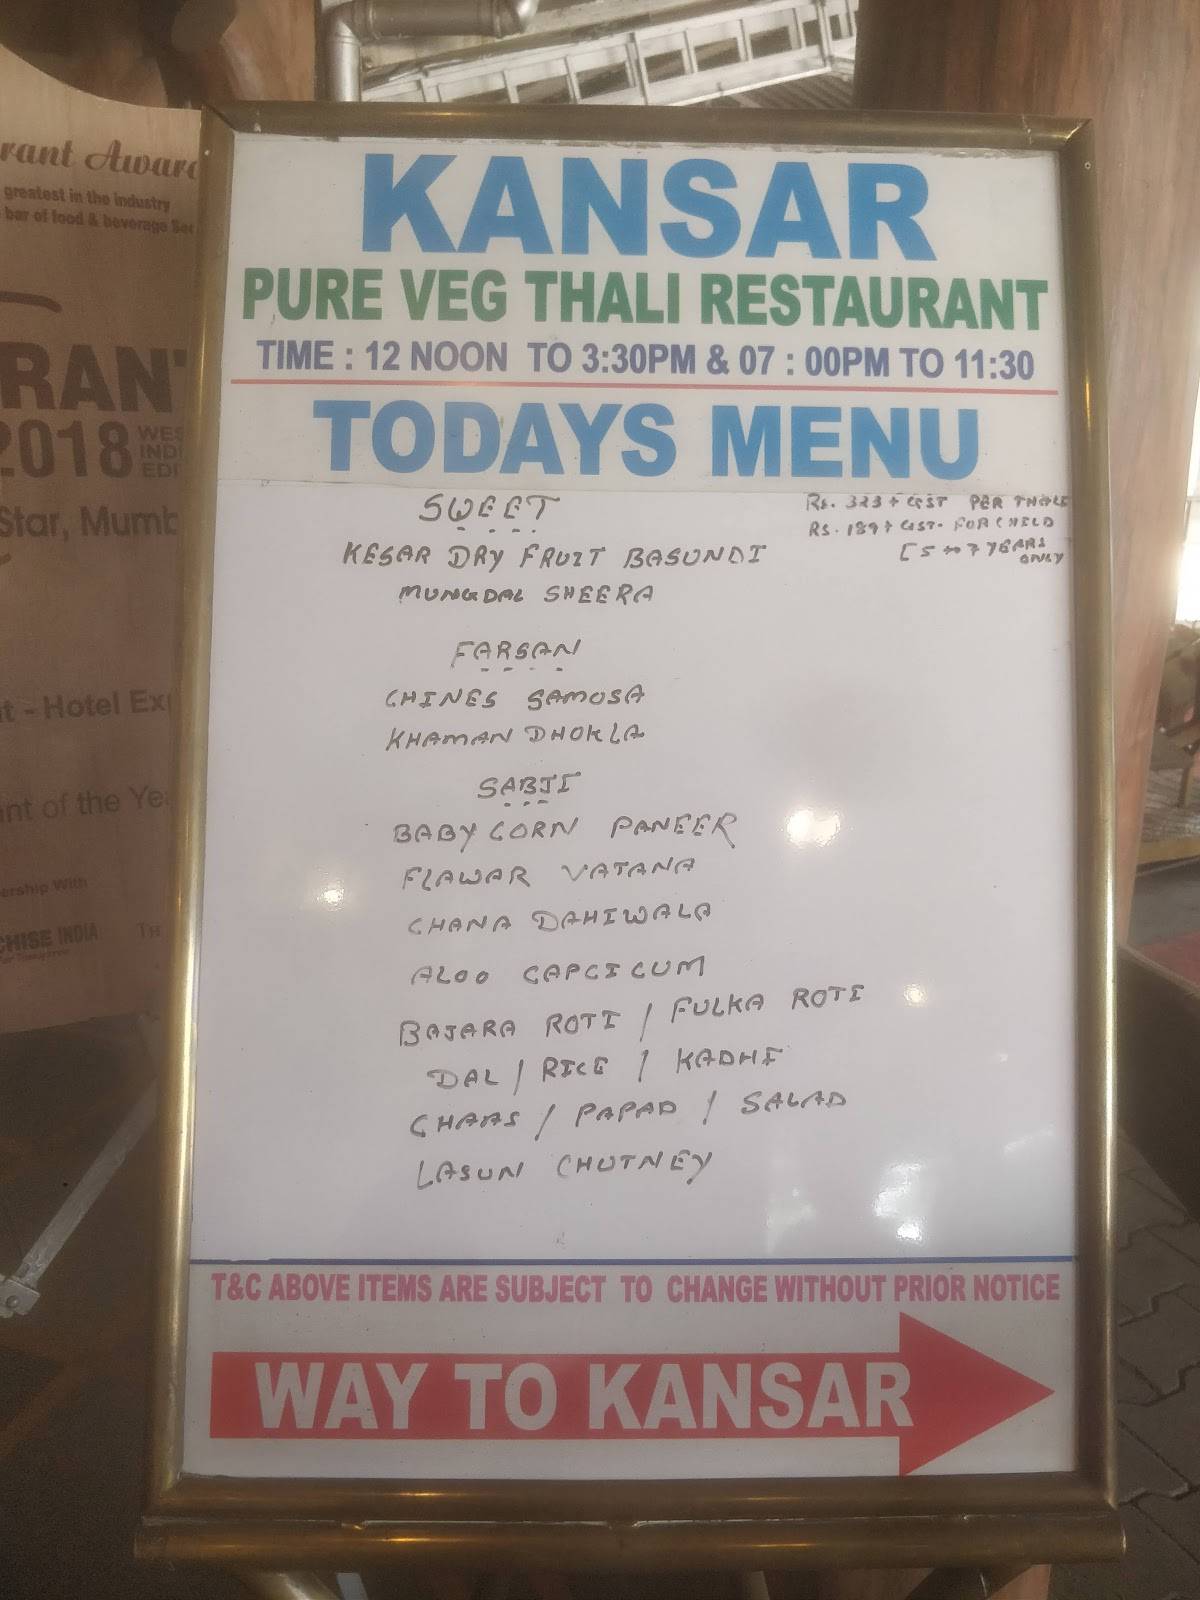 rant Award
greatest in the industry
bar of food & beverage Sec
RANT
2018 WES
IND
EDI
Star, Mumb
t - Hotel Exp
nt of the Yea
ership With
CHISE INDIA
KANSAR
PURE VEG THALI RESTAURANT
TIME : 12 NOON TO 3:30PM & 07 : 00PM TO 11:30
TODAYS MENU
SWEET
Rs. 323 + GST PER THALI
RS. 189 + GST. FOR CHILD
[5 to 7 YEARS
ONLY
KESAR DRY FRUIT BASUNDI
MUNGDAL SHEERA
FARSAN
CHINES SAMOSA
KHAMAN DHOKLA
SABJI
BABY CORN PANEER
FLAWAR VATANA
CHANA DAHIWALA
ALOO CAPCICUM
BAJARA ROTI / FULKA ROTI
DAL / RICE / KADHI
CHAAS / PAPAD / SALAD
LASUN CHUTNEY
T&C ABOVE ITEMS ARE SUBJECT TO CHANGE WITHOUT PRIOR NOTICE
WAY TO KANSAR